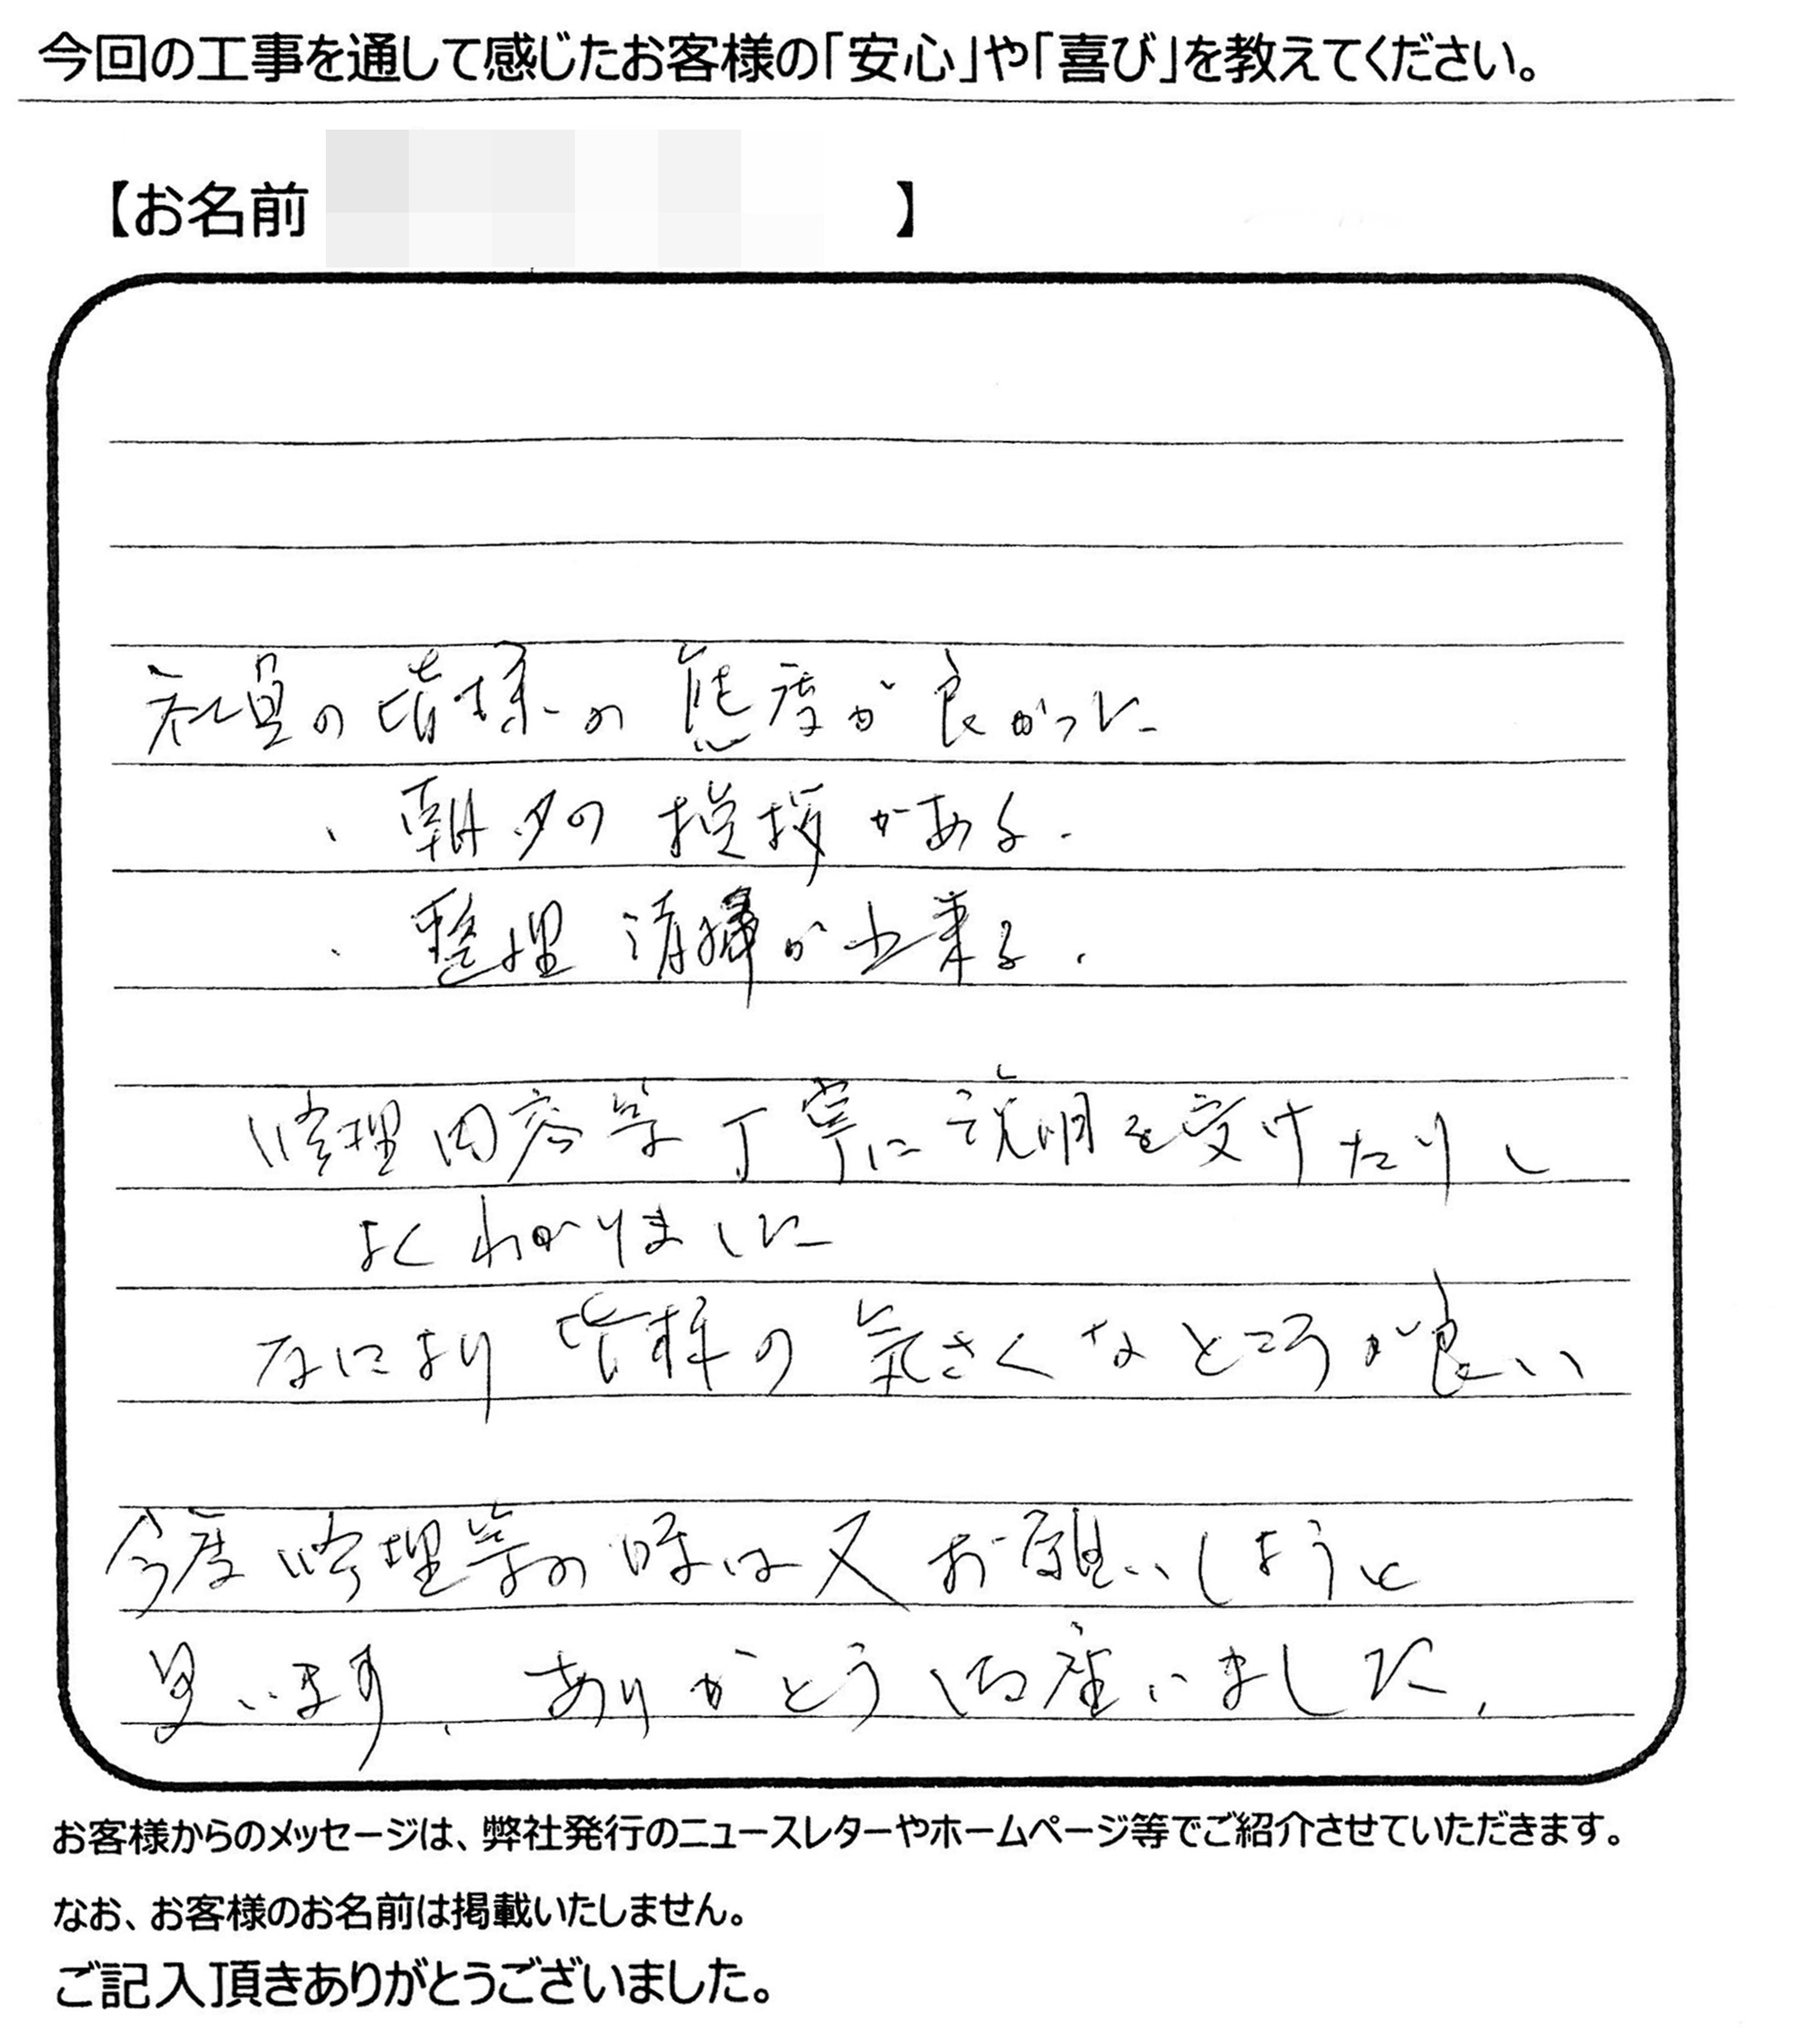 今回の工事を通して感じたお客様の「安心」や「喜び」を教えてください。
【お名前　】
社員の皆様の態度が良かった
、朝夕の挨拶がある.
、整理 清掃が出来る.
修理内容等丁寧に説明を受けたりし
よくわかりました
なにより皆様の気さくなところが良い
今度修理等の時は又お願いしようと
思います、ありがとう御座いました.
お客様からのメッセージは、弊社発行のニュースレターやホームページ等でご紹介させていただきます。
なお、お客様のお名前は掲載いたしません。
ご記入頂きありがとうございました。